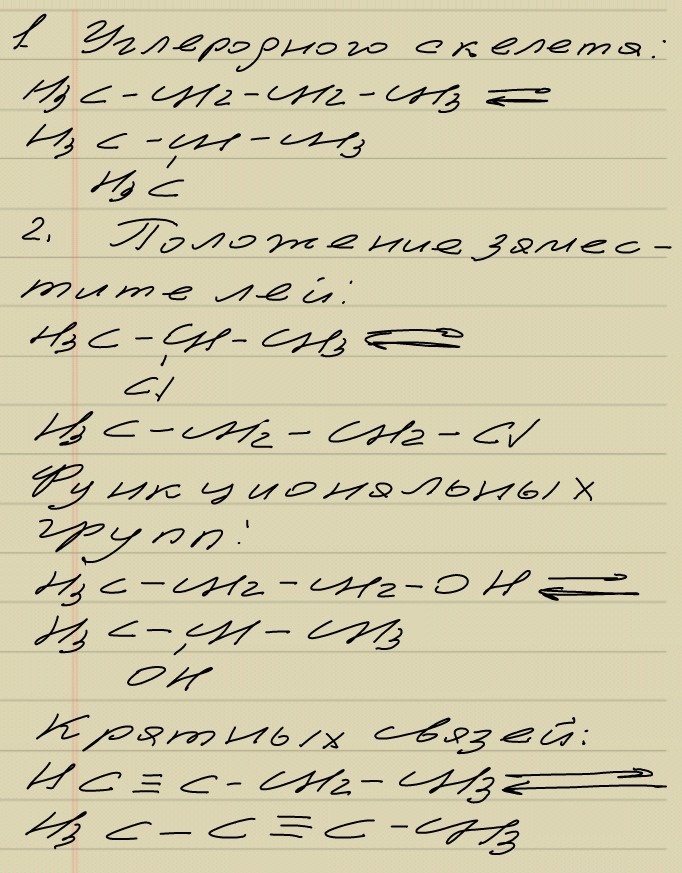 1. Углеродного скелета:
H3C-CH2-CH2-CH3 ⇌
H3C-CH-CH3
H3C
2. Положение замес-
тителей:
H3C-CH-CH3 ⇌
Cl
H3C-CH2-CH2-Cl
Функциональных
групп:
H3C-CH2-CH2-OH ⇌
H3C-CH-CH3
OH
Кратных связей:
HC≡C-CH2-CH3 ⇌
H3C-C≡C-CH3